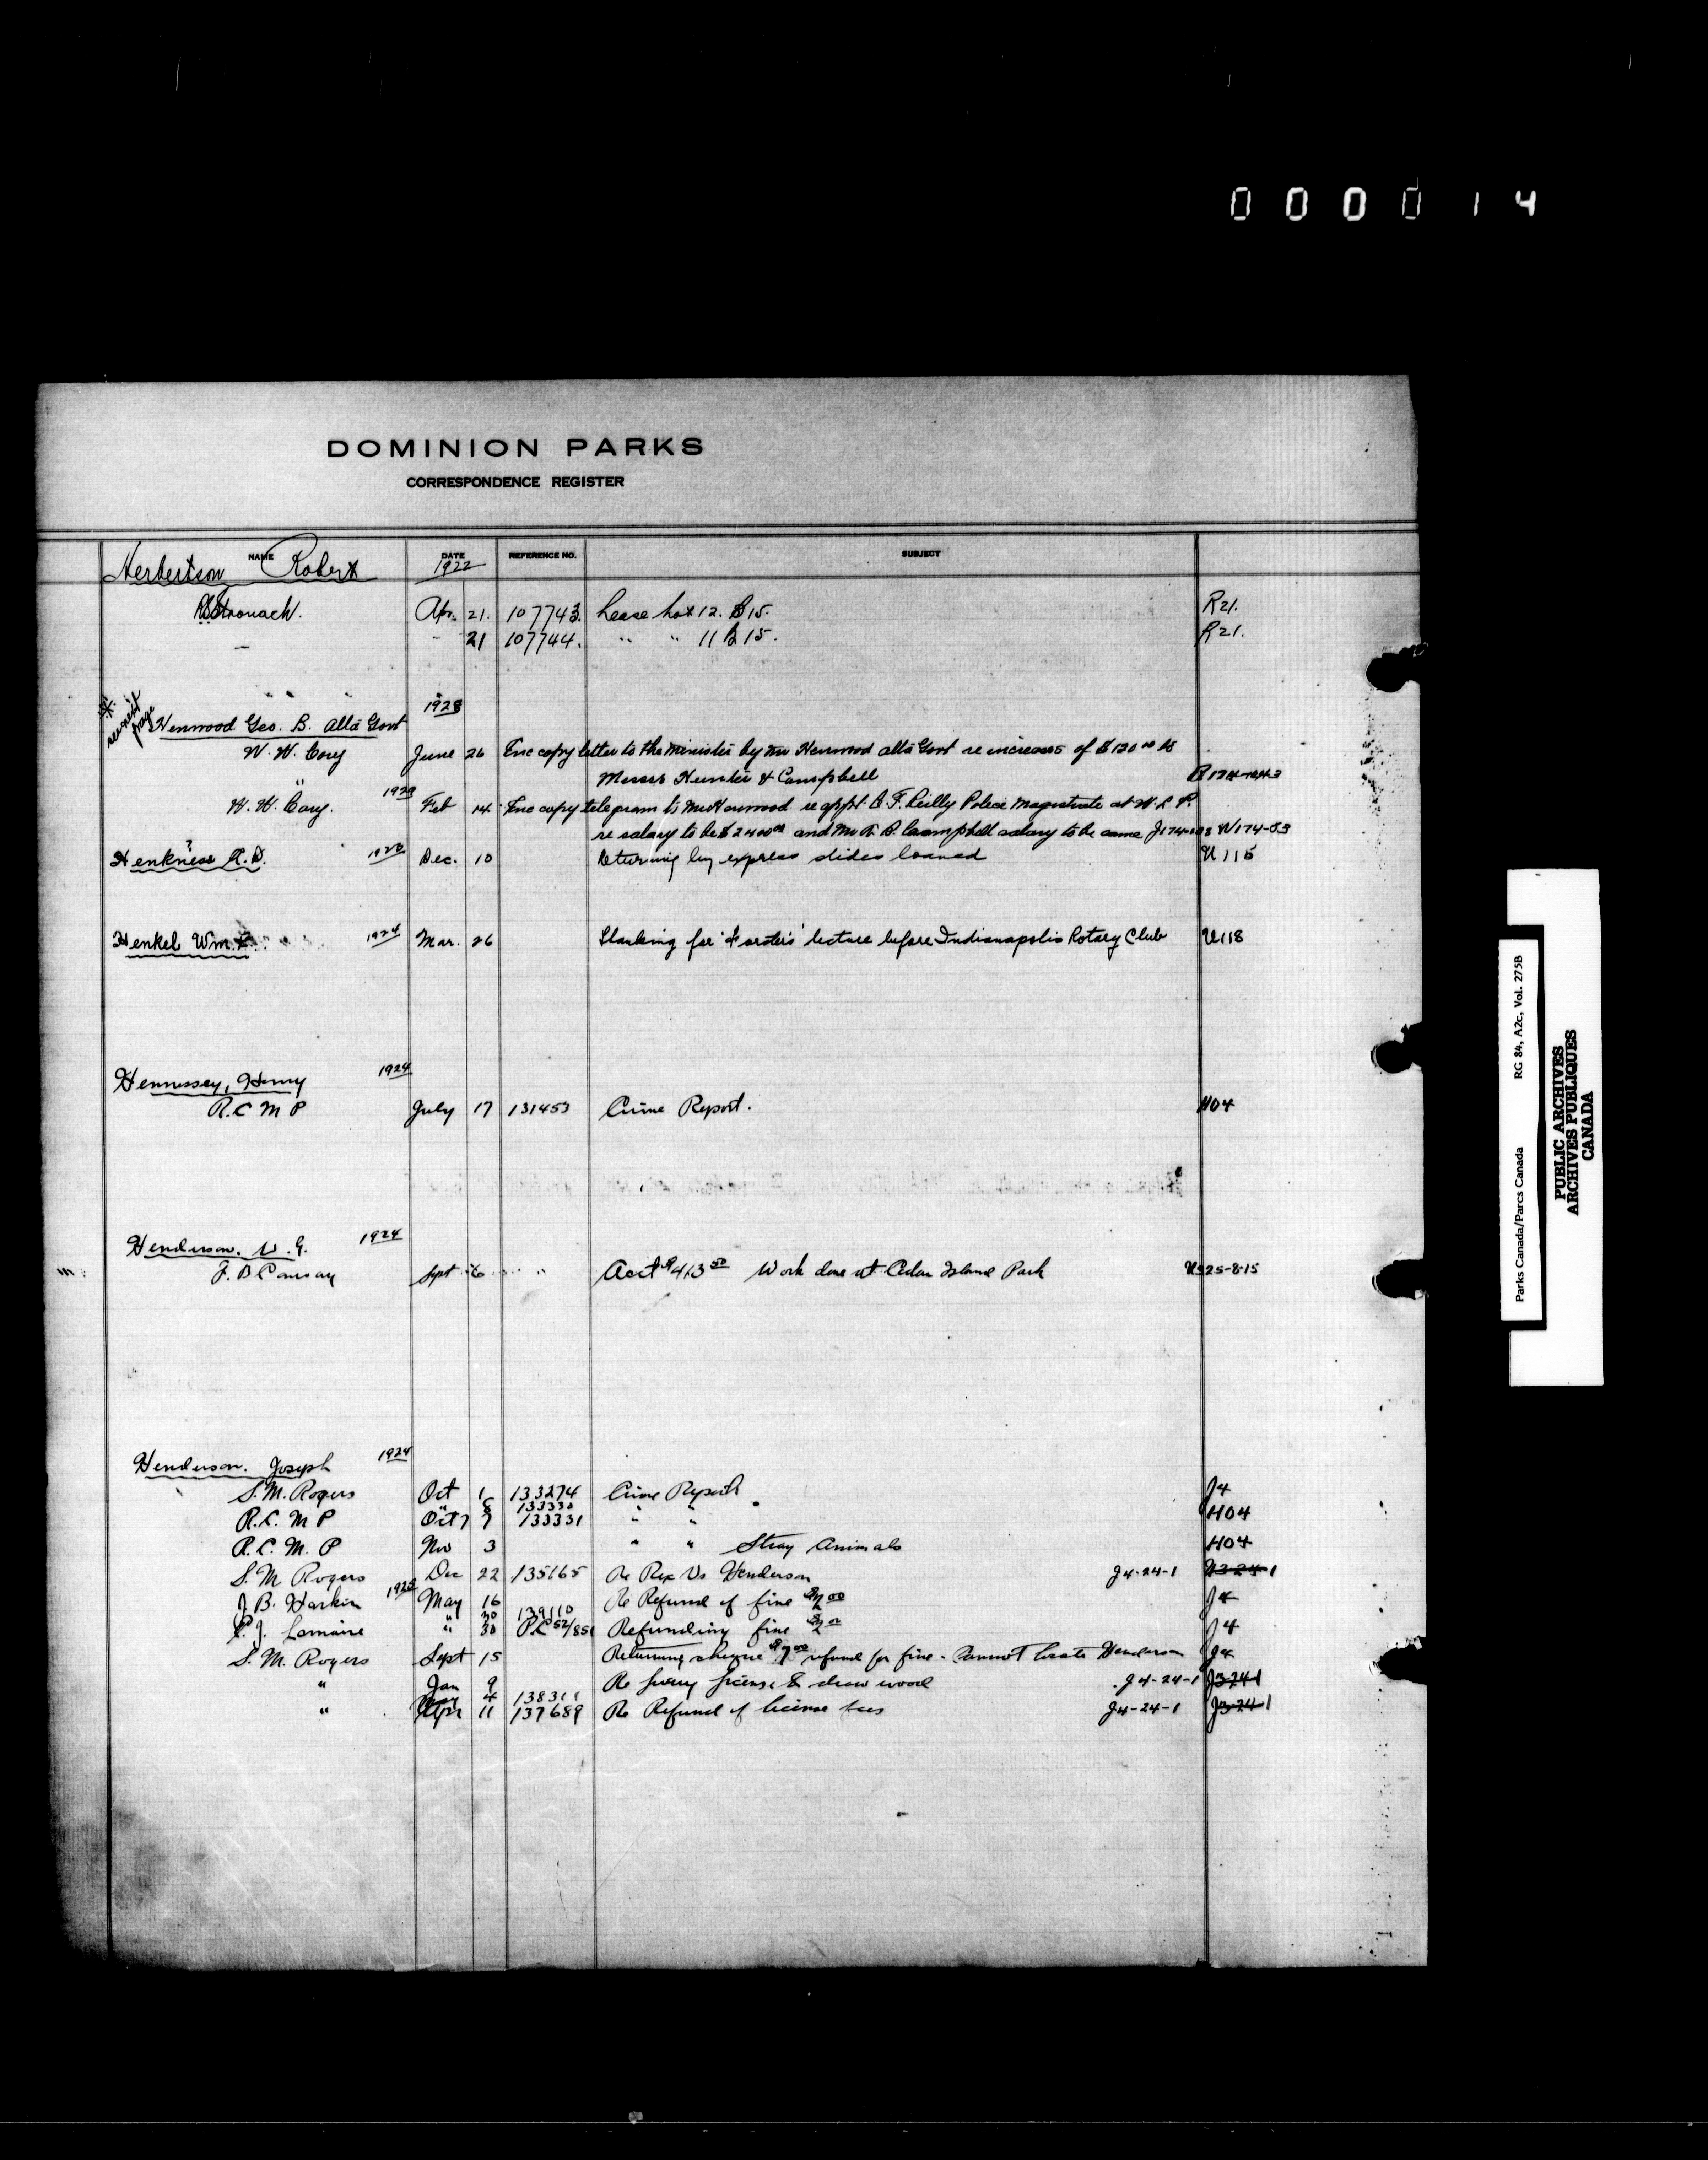 0 0 0 0 1 4
DOMINION PARKS
CORRESPONDENCE REGISTER
NAME DATE REFERENCE NO. SUBJECT
Herbertson Robert 1922
Stronach. Apr. 21. 107743. Lease Lot 12. B 15. R21.
" 21 107744. " " 11 B 15. R21.
* see next page
Henwood Geo. B. Alta Govt 1923
W. W. Cory June 26 Enc copy letter to the Minister by Mr Henwood Alta Govt re increases of $120 00 to
Messrs Hunter & Campbell
W. W. Cory. 1923 Feb 14 Enc copy telegram to Mr Henwood re appt. F. Reilly Police Magistrate at W. L. P.
re salary to be $2400 00 and Mr Campbell salary to be same W174-03
Henkness A. D. ? 1923 Dec. 10 Returning by express slides loaned U115
Henkel Wm. 1924 Mar. 26 Thanking for lecture before Indianapolis Rotary Club U118
Hennessey, Henry 1924
R.C M P July 17 131453 Crime Report. H04
Henderson. W. G. 1924
Sept 6 Acct $413 50 Work done at Cedar Island Park U325-8-15
Henderson. Joseph 1924
S. M. Rogers Oct 1 133274 Crime Report J4
" 8 133330
R.C. M P Oct 7 133331 " " H04
R.C. M. P Nov 3 " " Stray Animals H04
S. M Rogers Dec 22 135165 Re Rex Vs Henderson J4-24-1
J. B. Harkin 1925 May 16 Re Refund of fine J4
30 139110
C. J. Lemaire " 30 P.C 52/851 Refunding fine J4
S. M. Rogers Sept 15 Returning cheque refund for fine. Cannot locate Henderson J4
" Jan 9 Re livery license & draw wood J4-24-1 J3-24-1
4 1383
" Apr 11 137689 Re Refund of license fees J4-24-1 J3-24-1
Parks Canada/Parcs Canada RG 84, A2c, Vol. 275B
PUBLIC ARCHIVES
ARCHIVES PUBLIQUES
CANADA